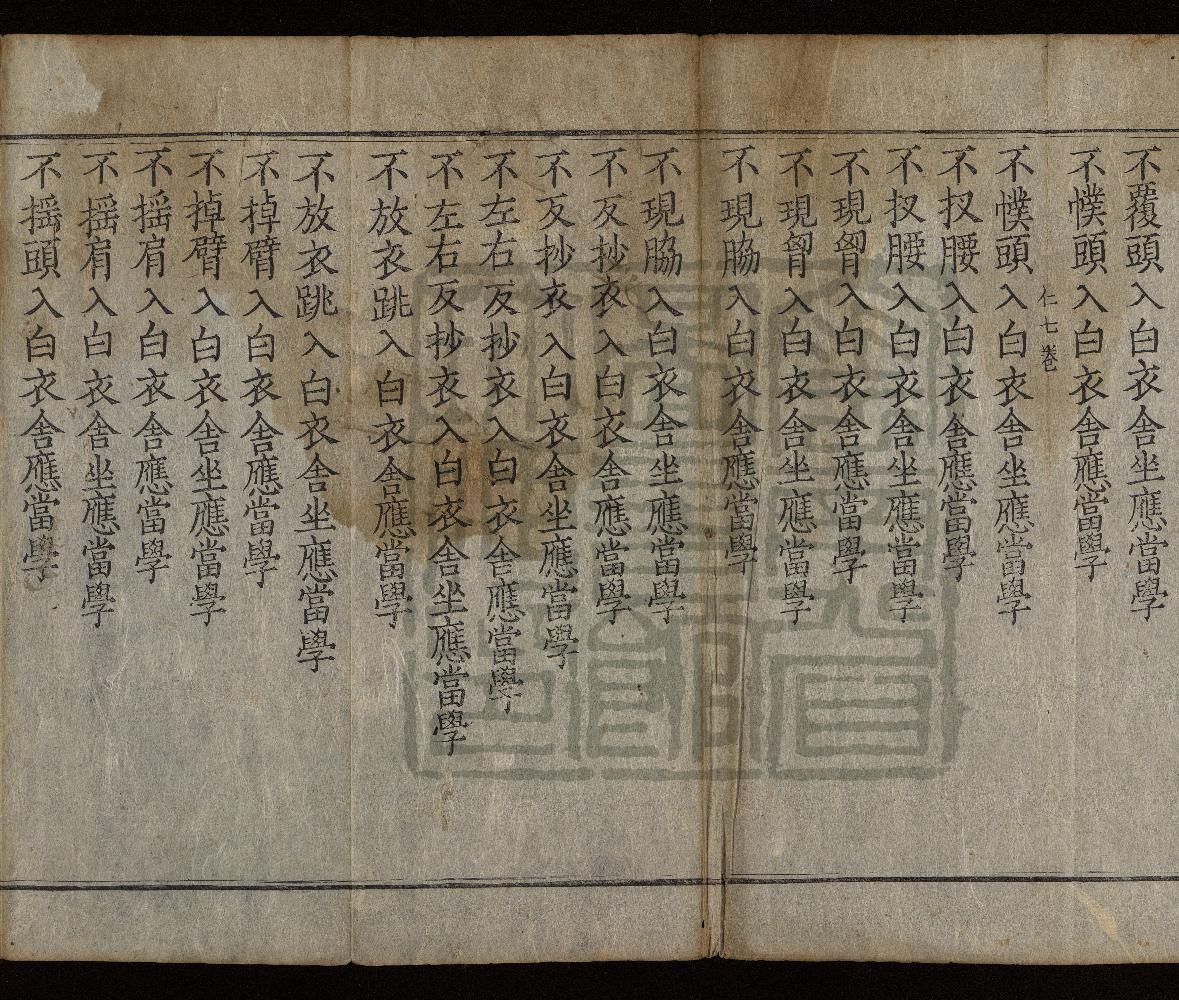 不覆頭入白衣舍坐應當學
不幞頭入白衣舍應當學
仁七
不幞頭入白衣舍坐應當學
不扠腰入白衣舍應當學
不扠腰入白衣舍坐應當學
不現胷入白衣舍應當學
不現胷入白衣舍坐應當學
不現脇入白衣舍應當學
不現脇入白衣舍坐應當學
不反抄衣入白衣舍應當學
不反抄衣入白衣舍坐應當學
不左右反抄衣入白衣舍應當學
不左右反抄衣入白衣舍坐應當學
不放衣跳入白衣舍應當學
不放衣跳入白衣舍坐應當學
不掉臂入白衣舍應當學
不掉臂入白衣舍坐應當學
不揺肩入白衣舍應當學
不揺肩入白衣舍坐應當學
不揺頭入白衣舍應當學